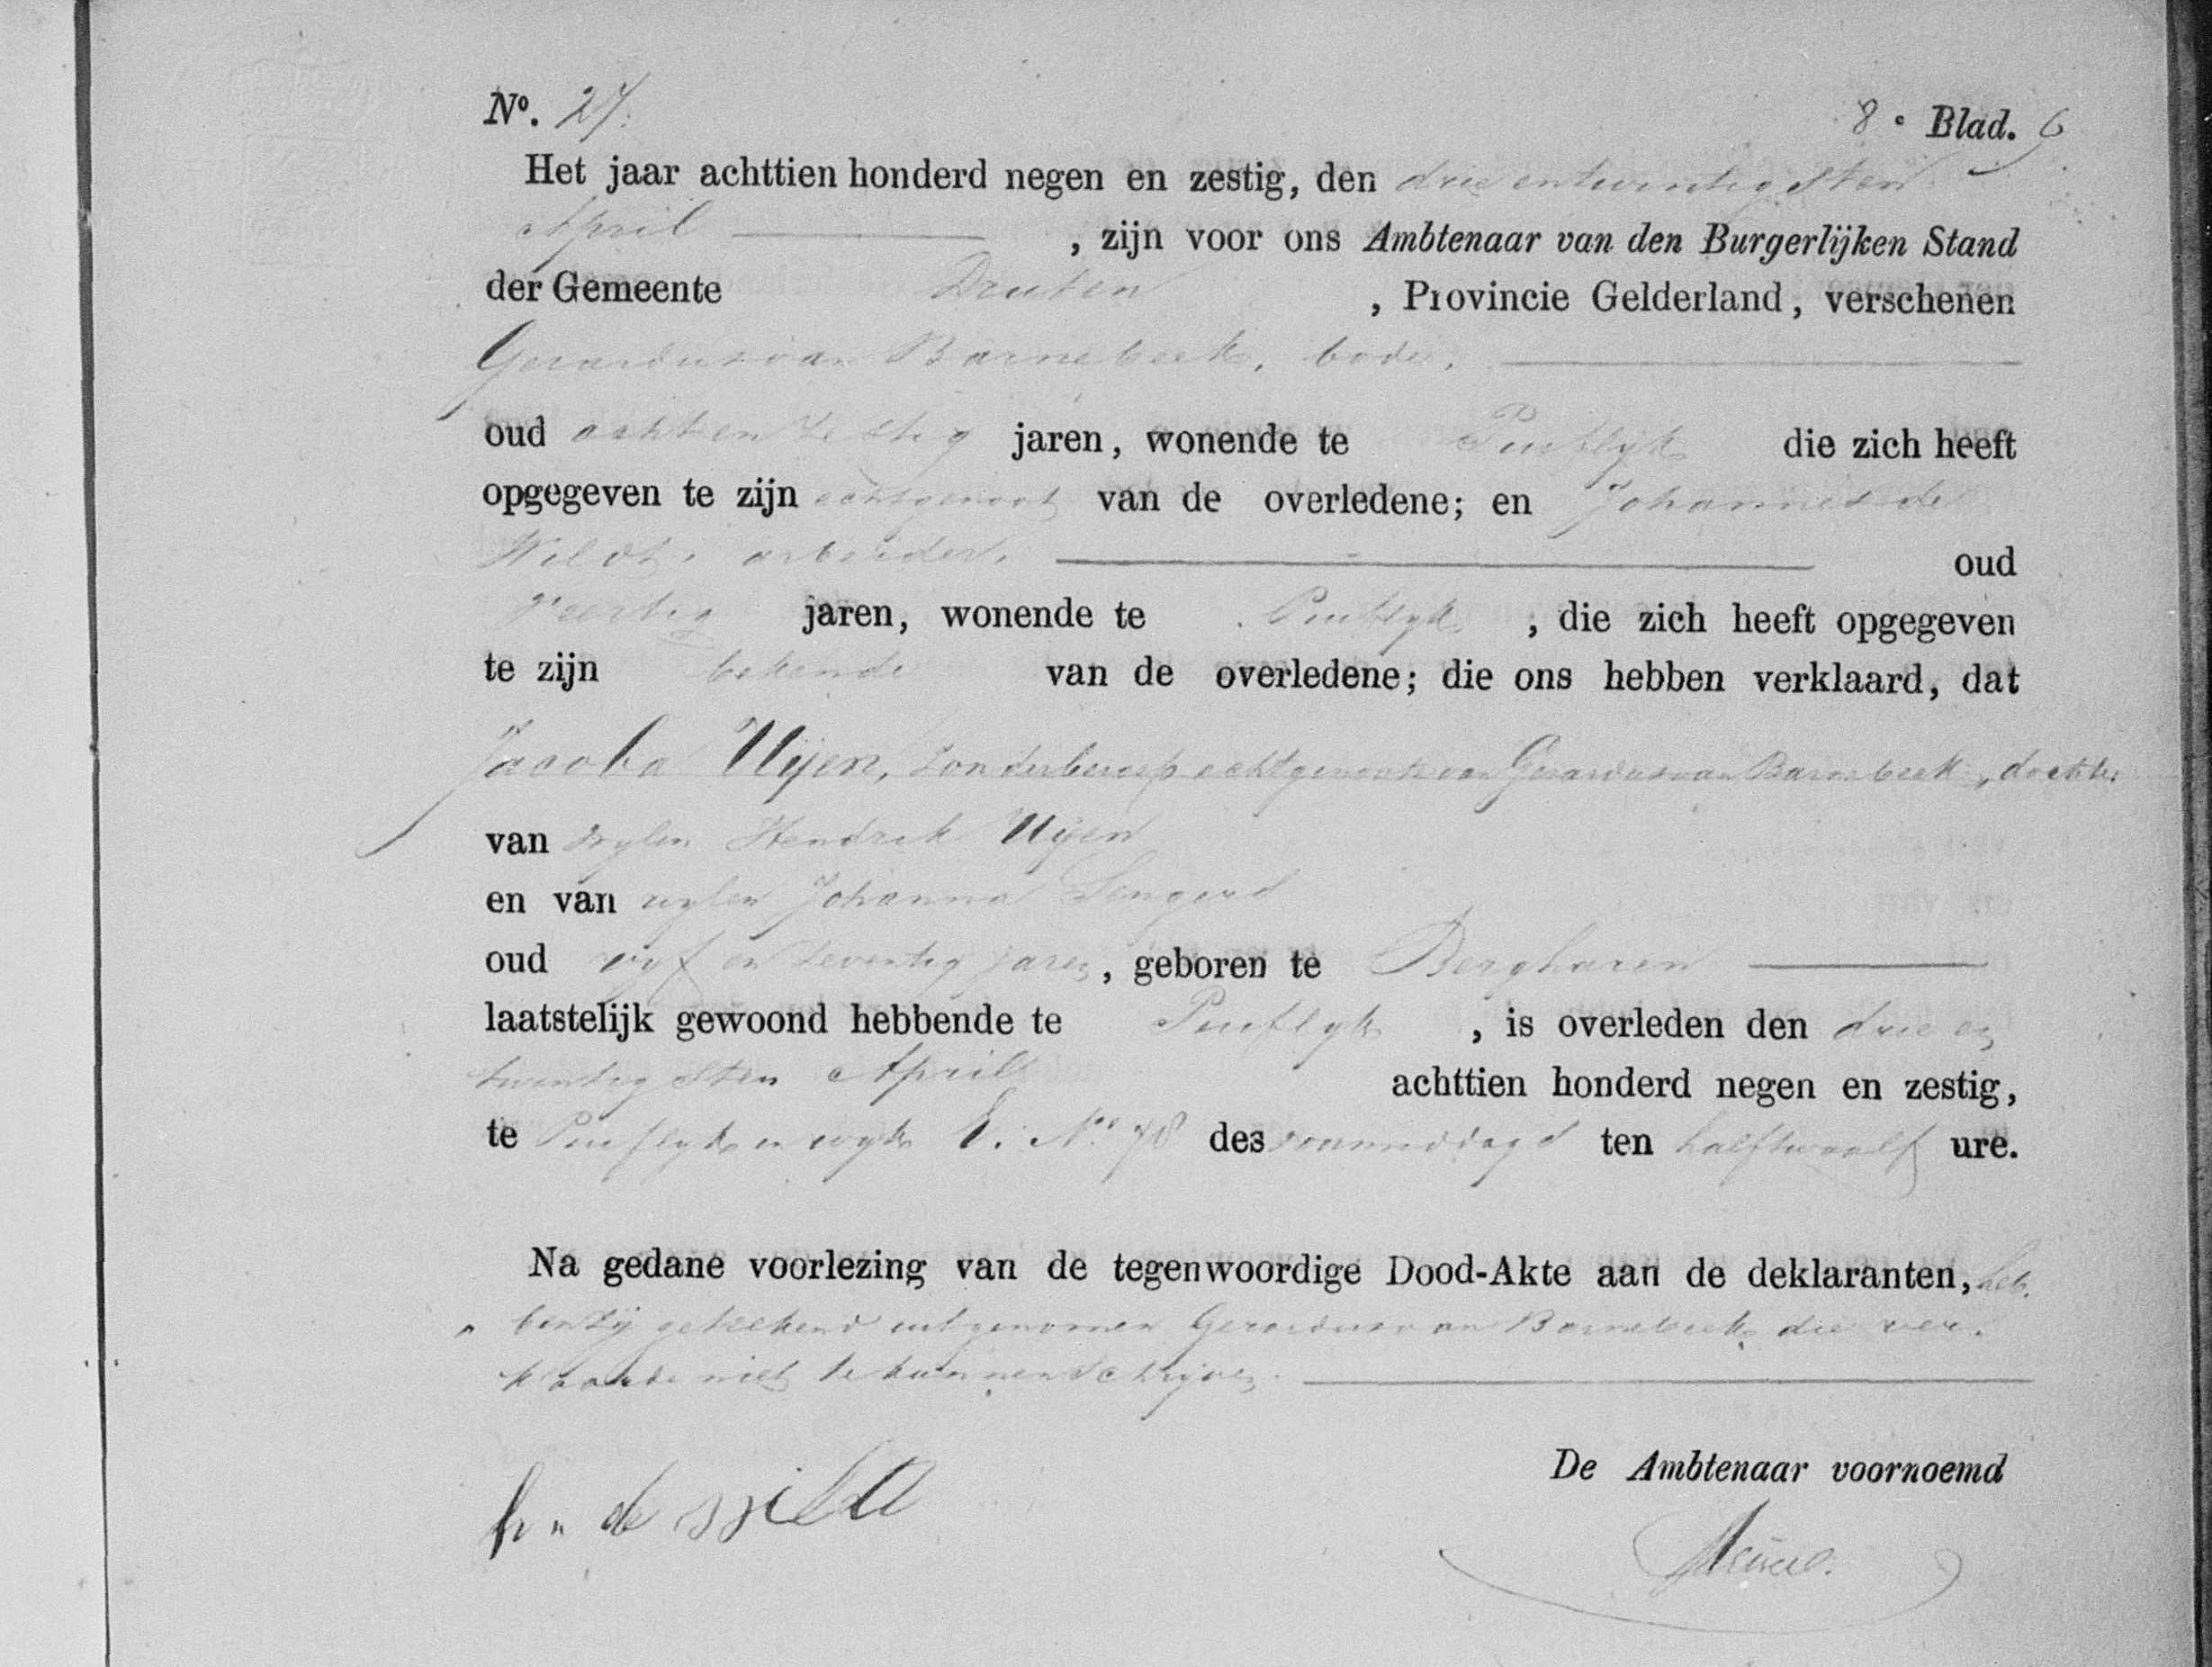 Nº. 27. 8e Blad. 6
Het jaar achttien honderd negen en zestig, den drie entwintigsten
April , zijn voor ons Ambtenaar van den Burgerlijken Stand
der Gemeente Druten , Provincie Gelderland, verschenen
Gerardus van Barnebeek, bode,
oud acht en zestig jaren, wonende te Puiflijk die zich heeft
opgegeven te zijn echtgenoot van de overledene; en Johannes de
Wildt, arbeider, oud
Veertig jaren, wonende te Puiflijk , die zich heeft opgegeven
te zijn bekende van de overledene; die ons hebben verklaard, dat
Jacoba Uijen, zonder beroep echtgenoote van Gerardus van Barnebeek, dochter
van wylen Hendrik Uijen
en van wylen Johanna
oud vyf en zeventig jaren, geboren te Bergharen
laatstelijk gewoond hebbende te Puiflyk , is overleden den drie en
twintigsten April achttien honderd negen en zestig,
te Puiflyk in wyk E. Nº 78 des voormiddags ten half twaalf ure.
Na gedane voorlezing van de tegenwoordige Dood-Akte aan de deklaranten, heb-
ben zij geteekend uitgenomen Gerardus van Barnebeek die ver-
klaarde niet te kunnen schrijven.
De Ambtenaar voornoemd
de Wildt